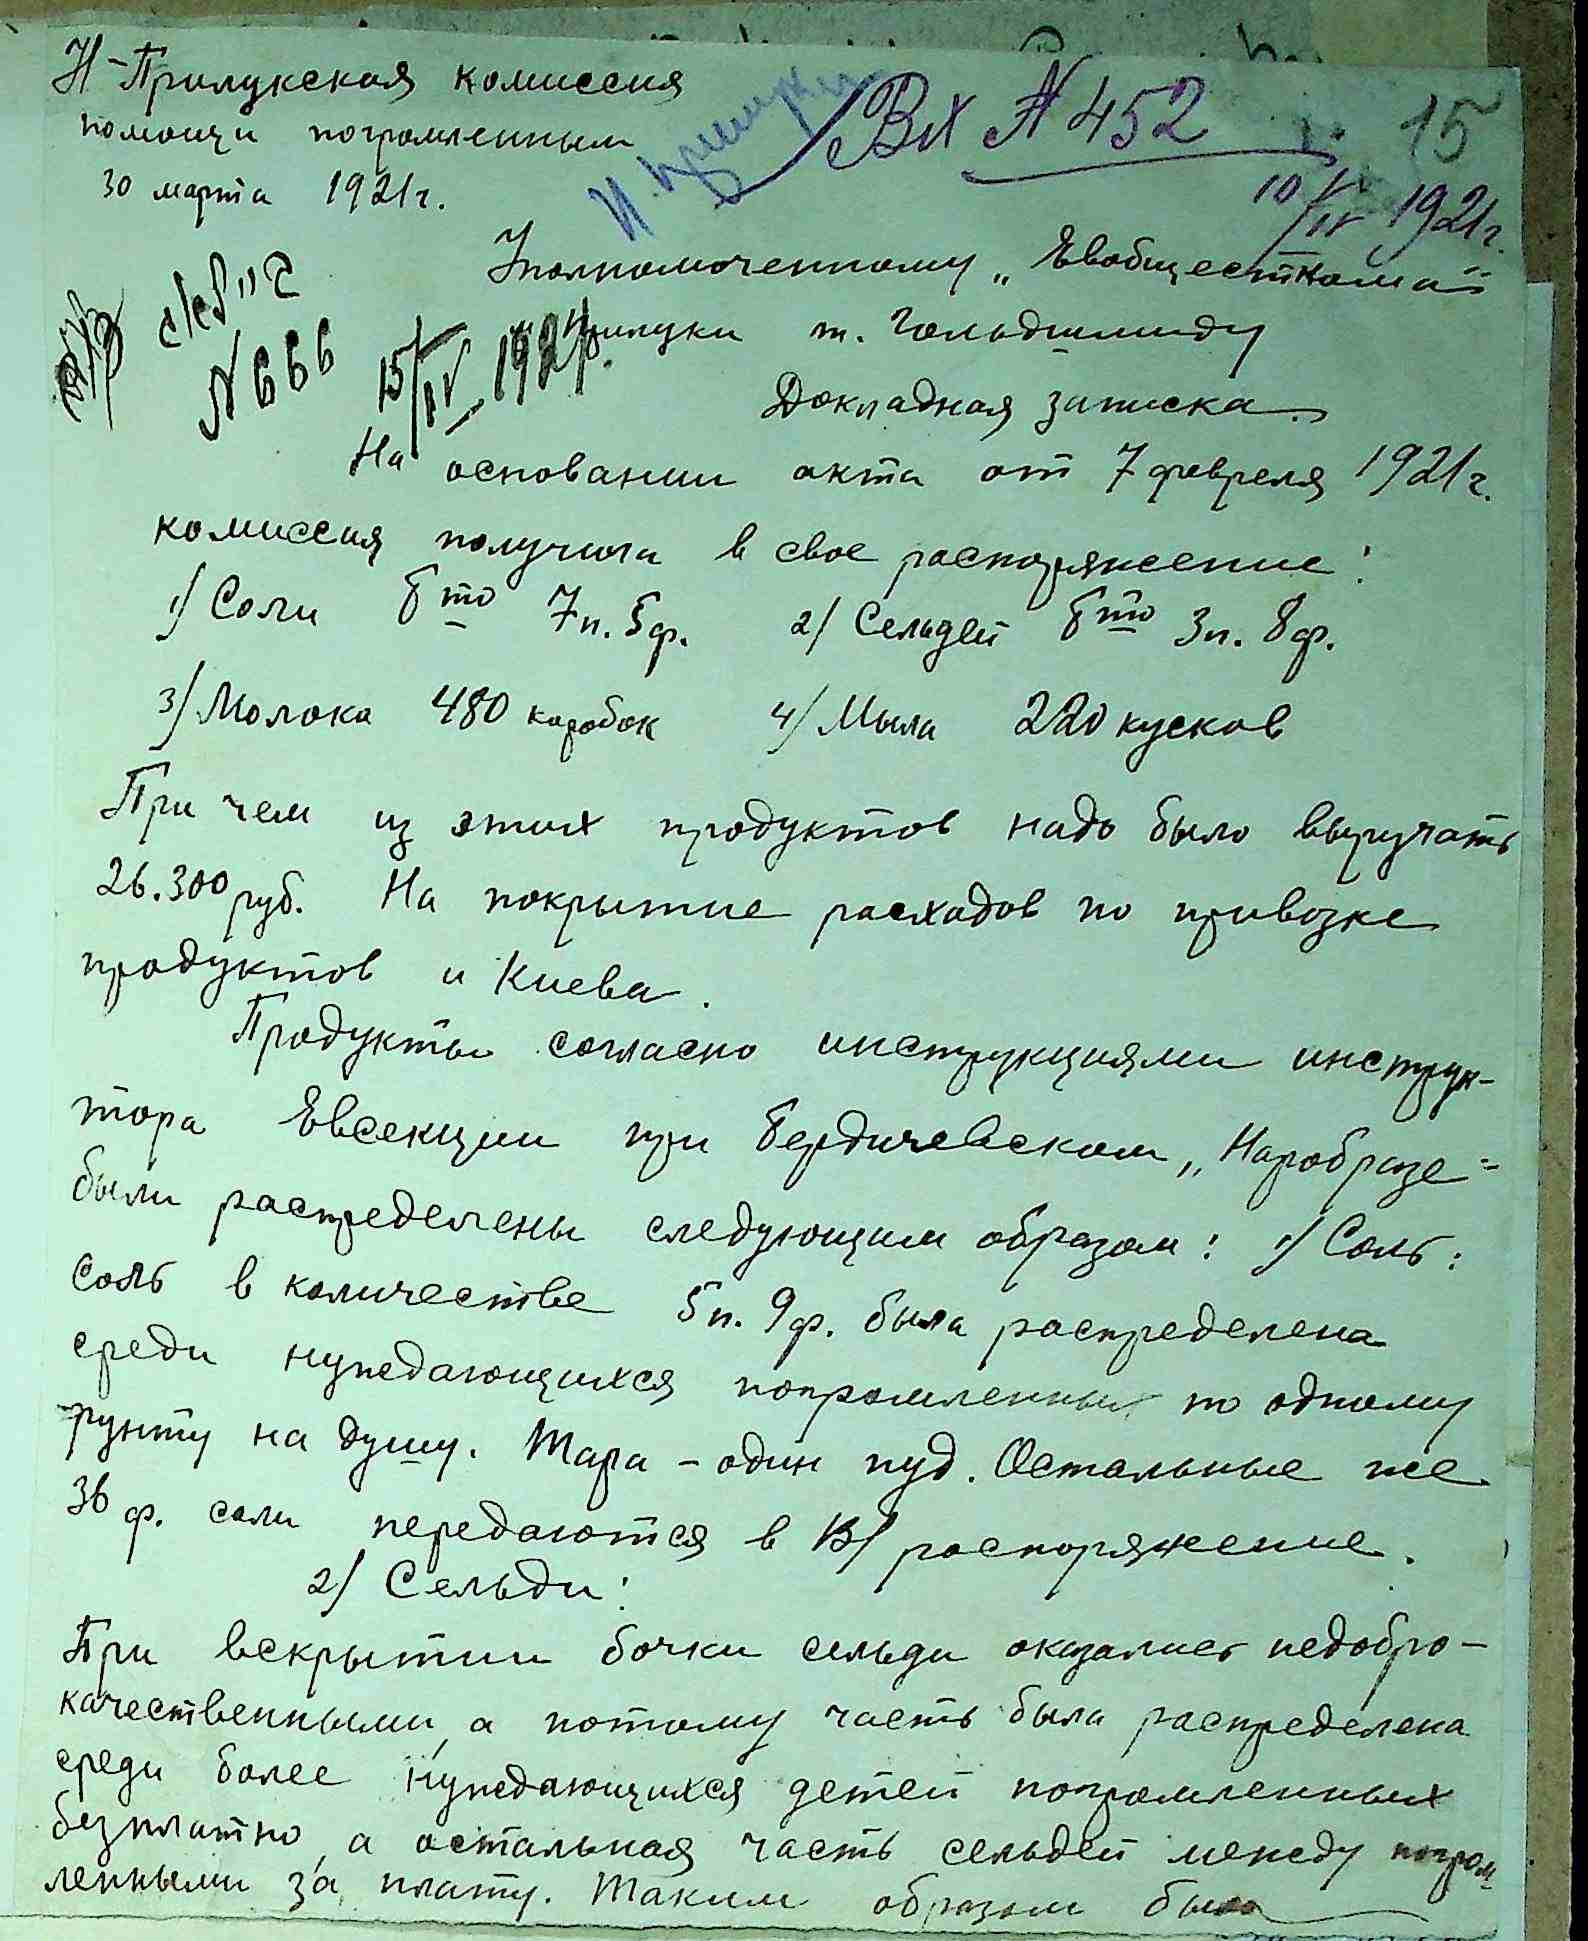 Н-Прилукская комиссия
помощи погромленным
30 марта 1921 г.
Н. Прилуки
Вх № 452
15
10/IV 1921 г.
Уполномоченному „Евобщесткома"
Прилуки т. Гольдшмиду
№ 666
15/IV 1921 г.
Докладная записка
На основании акта от 7 февреля 1921 г.
комиссия получила в свое распоряжение:
1/ Соли бто 7 п. 5 ф. 2/ Сельдей бто 3 п. 8 ф.
3/ Молока 480 коробок 4/ Мыла 220 кусков
При чем из этих продуктов надо было выручать
26.300 руб. На покрытие расходов по привозке
продуктов и Киева.
Продукты согласно инструкциями инструк-
тора Евсекции при Бердичевском „Наробразе"
были распределены следующим образом: 1/ Соль:
соль в количестве 5 п. 9 ф. была распределена
среди нуждающихся погромленных по одному
фунту на душу. Тара - один пуд. Остальные же
36 ф. соли передаются в В/ распоряжение.
2/ Сельди:
При вскрытии бочки сельди оказались недобро-
качественными, а потому часть была распределена
среди более нуждающихся детей погромленных
безплатно, а остальная часть сельдей между погром-
ленными за плату. Таким образом было